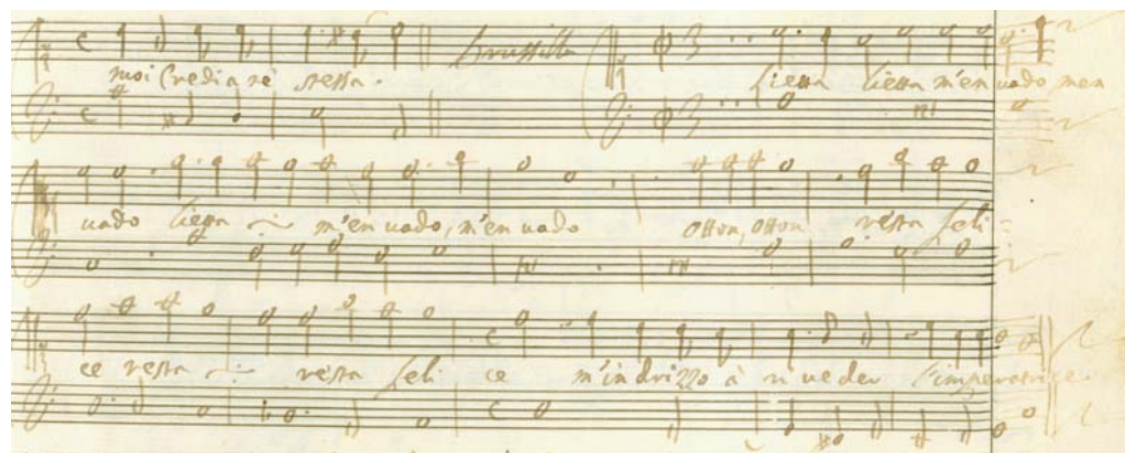 Drusilla
tuoi Credi a te stessa. Lietta lietta m'en uado men
uado lietta m'en uado, m'en uado otton, otton resta feli
ce resta resta feli ce m'in drizzo à ri ueder l'imperatrice.